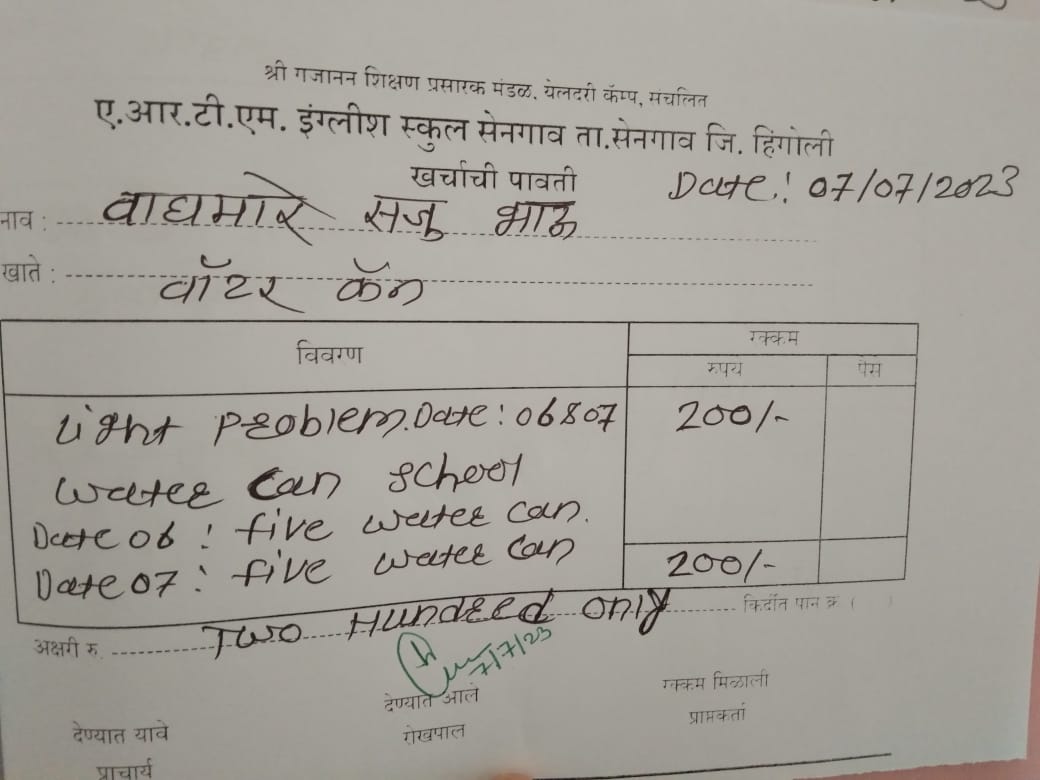 श्री गजानन शिक्षण प्रसारक मंडळ, येलदरी कॅम्प, संचलित
ए.आर.टी.एम. इंग्लीश स्कुल सेनगाव ता.सेनगाव जि. हिंगोली
खर्चाची पावती
Date: 07/07/2023
नाव : वाघमारे सजु भाऊ
खाते : वॉटर कॅन
विवरण रक्कम
रुपये पैसे
Light problem. Date: 06&07 200/-
Water can school
Date 06 : five water can.
Date 07 : five water can 200/-
अक्षरी रु. Two Hundred only किर्दीत पान क्र ( )
7/7/23
देण्यात यावे देण्यात आले रक्कम मिळाली
प्राचार्य रोखपाल प्राप्तकर्ता